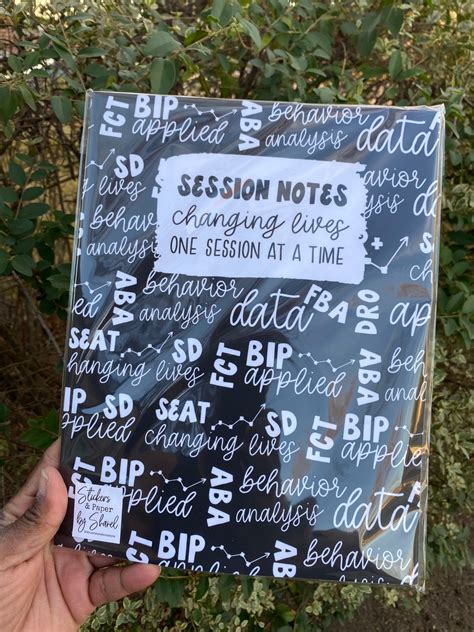 FCT BIP applied ABA behavior analysis data
SD lives
SESSION NOTES
changing lives
ONE SESSION AT A TIME
behavior analysis
behavior analysis
+
ABA behavior analysis data FBA DRO
SEAT SD FCT BIP ABA
changing lives applied
behavior analysis
IP SD SEAT SD FCT BIP
applied changing lives applied
FCT BIP applied ABA behavior analysis data
ABA BIP SD behavior analysis
applied
Stickers
& Paper
by Sharel